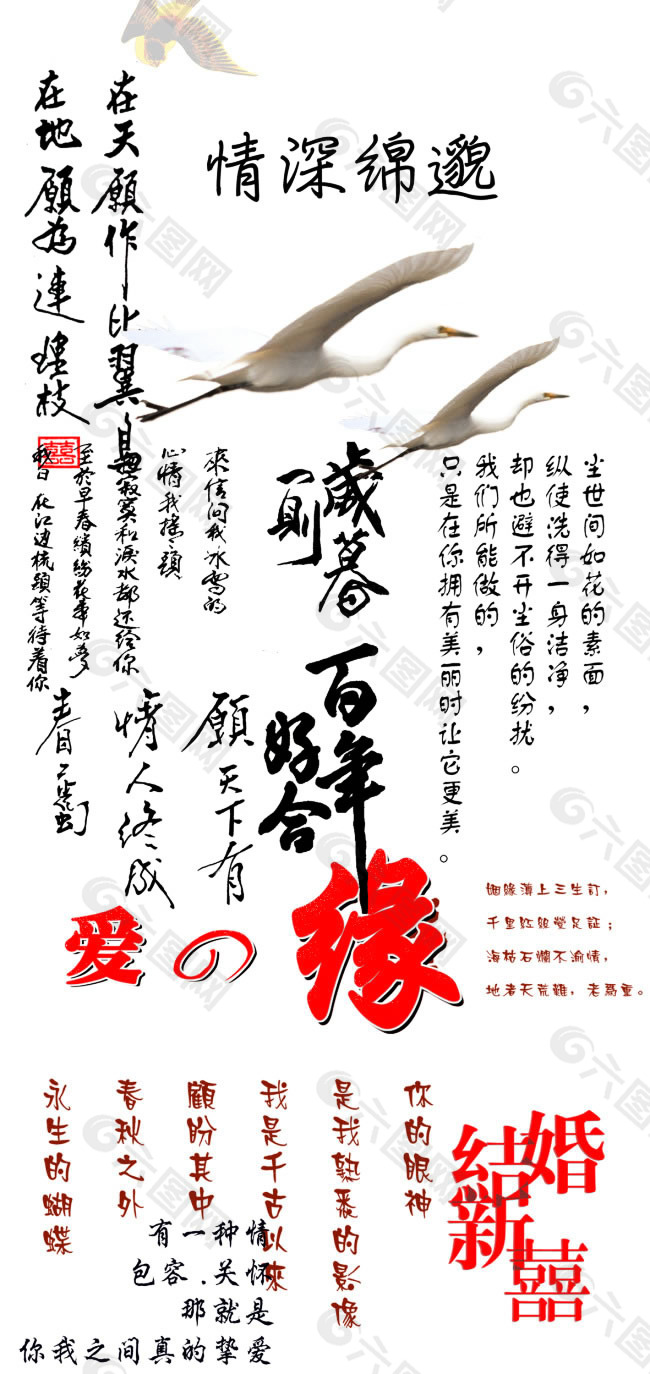 情深绵邈
在天願作比翼鳥
在地願為連理枝
囍
來信问我冰雪的
心情我搖頭
把寂寞和淚水都还给你
至於早春繽紛花事如夢
我日在江边梳頭等待着你
歲暮
一則
尘世间如花的素面，
纵使洗得一身洁净，
却也避不开尘俗的纷扰。
我们所能做的，
只是在你拥有美丽时让它更美。
百年
好合
願天下有
情人终成
眷属
爱の缘
姻緣薄上三生訂，
千里紅線瑩足証；
海枯石爛不渝情，
地老天荒難，老為重。
你的眼神
是我熟悉的影像
我是千古以來
顧盼其中
春秋之外
永生的蝴蝶
有一种情
包容.关怀
那就是
你我之间真的挚爱
婚
結
新
囍
六图网